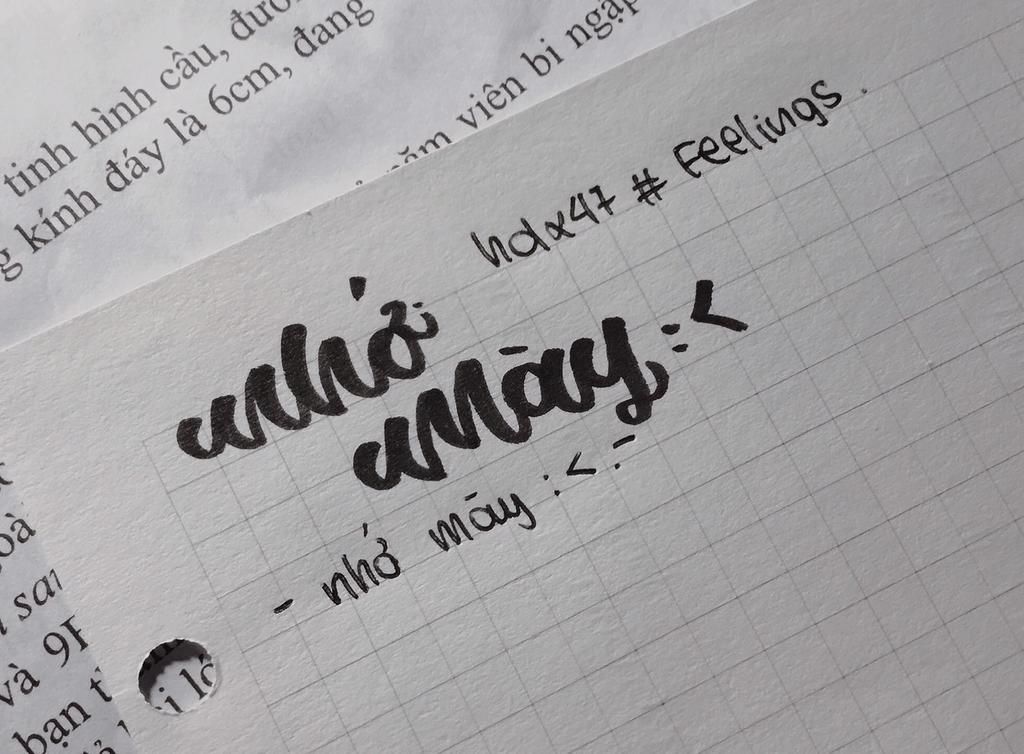 tinh hình cầu, đượ
g kính đáy là 6cm, đang
năm viên bi ngập
hdx47 # Feelings.
nhớ
mày :<
- nhớ mày :< :-
oà
sa
và 9
bạn t